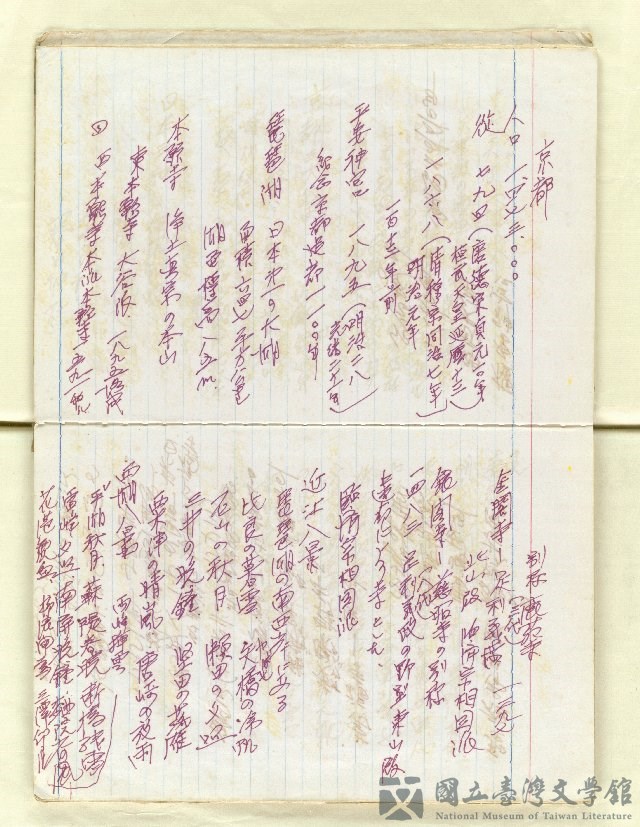 京都
人口 一、四七三、〇〇〇
從 七九四(唐德宗貞元一〇年
桓武天皇延曆十三)
一八六八(清穆宗同治七年
明治元年)
一百十三年前
平安神宮 一八九五(明治二八
光緒二十一)
紀念京都建都一一〇〇年
琵琶湖 日本第一の大湖
面積六四七平方公里
湖面標高八五M
本願寺 淨土真宗の本山
東本願寺 大谷派 一八九五落成
西本願寺 本派本願寺 五九一
別稱鹿苑寺
金閣寺—足利義滿 一三九七
(三代)
北山殿 臨濟宗相国派
銀閣寺—慈照寺の別称
一四八二 足利義政の野望 東山殿
(八代)
臨濟宗相国派
近江八景
琵琶湖の南西岸にある
比良の暮雪 矢橋の帰帆
石山の秋月 瀬田の夕照
三井の晚鐘 堅田の落雁
粟津の晴嵐 唐崎の夜雨
西湖八景
平湖秋月 蘇隄春曉 断橋残雪
雷峰夕照 南屏晚鐘
花港觀魚 柳浪聞鶯 三潭印月
國立臺灣文學館
National Museum of Taiwan Literature